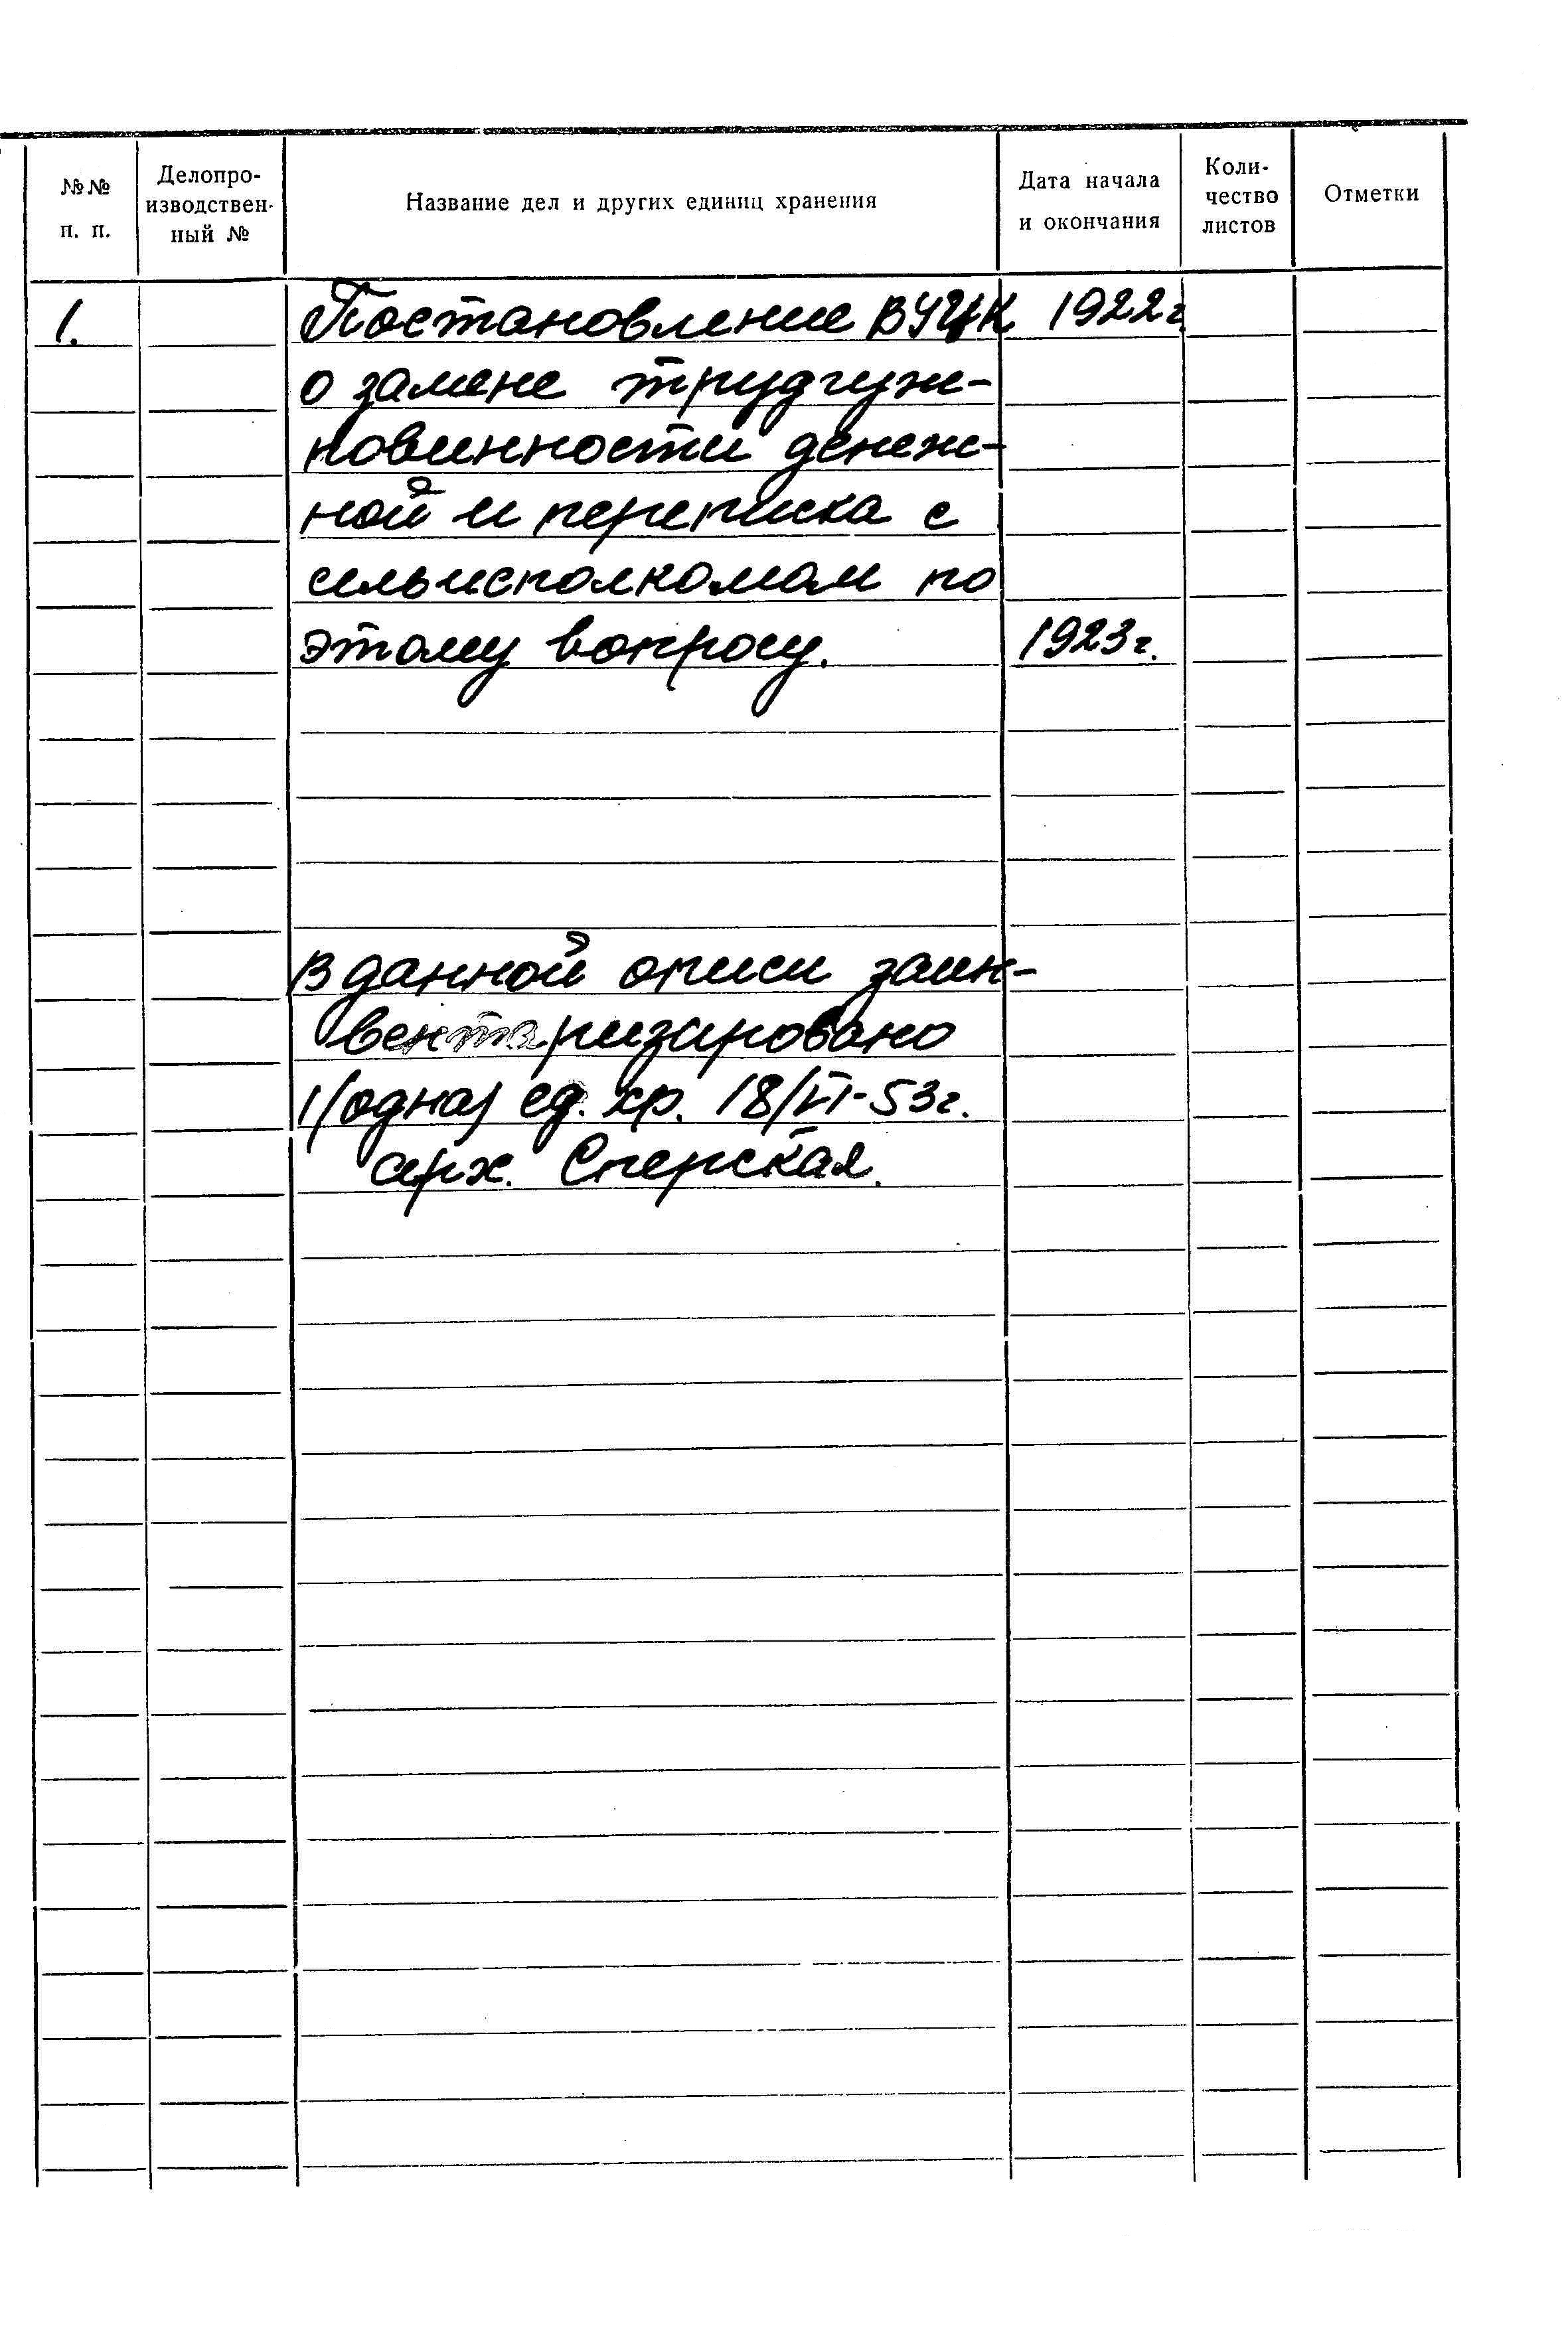 №№ п. п.
Делопро-
изводствен-
ный №
Название дел и других единиц хранения
Дата начала
и окончания
Коли-
чество
листов
Отметки
1. Постановление ВУЦИК 1922г
о замене трудгуж-
повинности денеж-
ной и переписка с
сельисполкомам по
этому вопросу. 1923г.
В данной описи заин-
вентаризировано
1/одна/ ед. хр. 18/VI-53г.
арх. Сперская.